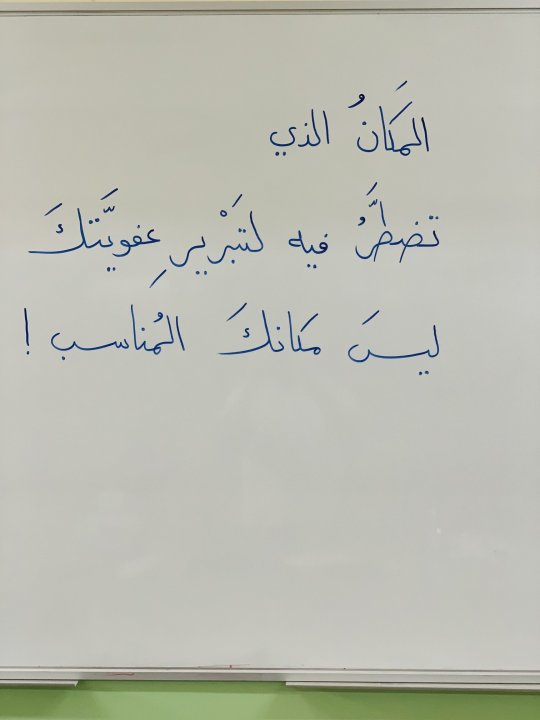 المَكانُ الذي
تضطرَُّ فيه لتَبْريرِ عفويَّتكَ
ليسَ مكانكَ المُناسب !